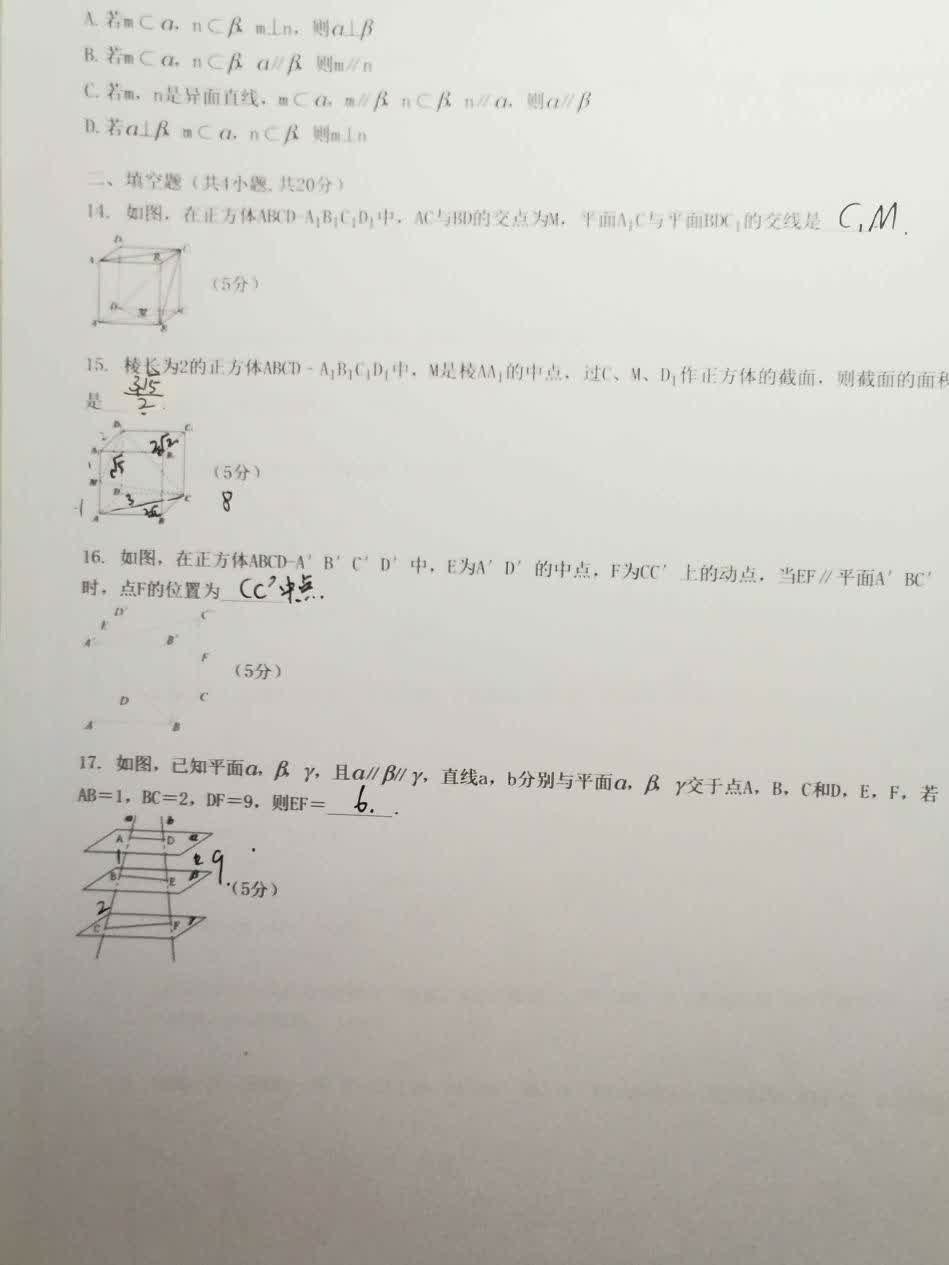 A. 若m⊂α, n⊂β, m⊥n, 则α⊥β
B. 若m⊂α, n⊂β, α∥β, 则m∥n
C. 若m, n是异面直线, m⊂α, m∥β, n⊂β, n∥α, 则α∥β
D. 若α⊥β, m⊂α, n⊂β, 则m⊥n
二、填空题（共4小题,共20分）
14. 如图, 在正方体ABCD-A₁B₁C₁D₁中, AC与BD的交点为M, 平面A₁C与平面BDC₁的交线是 C₁M.
（5分）
15. 棱长为2的正方体ABCD-A₁B₁C₁D₁中, M是棱AA₁的中点, 过C、M、D₁作正方体的截面, 则截面的面积
是
（5分）
8
16. 如图, 在正方体ABCD-A′B′C′D′中, E为A′D′的中点, F为CC′上的动点, 当EF∥平面A′BC′
时, 点F的位置为 CC′中点.
D′ C′
E
A′ B′
F
（5分）
D C
A B
17. 如图, 已知平面α, β, γ, 且α∥β∥γ, 直线a, b分别与平面α, β, γ交于点A, B, C和D, E, F, 若
AB=1, BC=2, DF=9, 则EF= 6.
a b
A D α
1 9
B E β
（5分）
2
C F γ